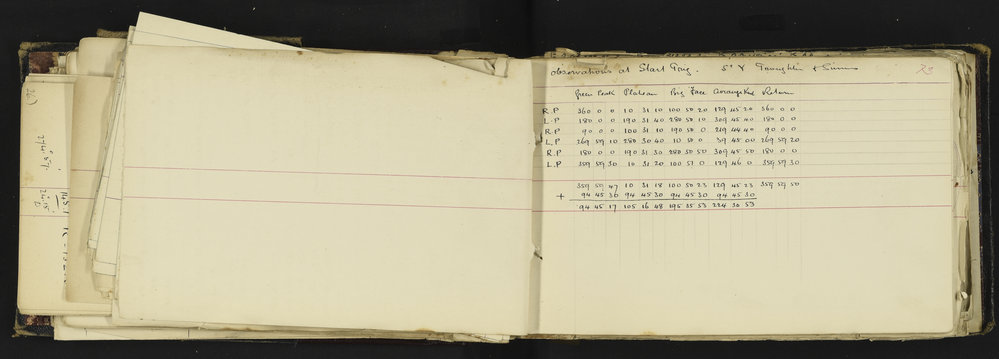 observations at Start Peg. 5" Y & R3
Green Peak Plateau Big Face Return
R.P 360 0 0 10 31 10 100 50 20 129 45 20 360 0 0
L.P 180 0 0 190 31 40 280 50 10 309 45 40 180 0 0
R.P 90 0 0 100 31 10 190 50 0 219 44 40 90 0 0
L.P 269 59 10 280 30 40 10 50 0 39 45 00 269 59 20
R.P 180 0 0 190 31 30 280 50 50 309 45 50 180 0 0
L.P 359 59 30 10 31 20 100 51 0 129 46 0 359 59 30
359 59 47 10 31 18 100 50 23 129 45 23 359 59 50
+ 94 45 30 94 45 30 94 45 30 94 45 30
94 45 17 105 16 48 195 35 53 224 30 53